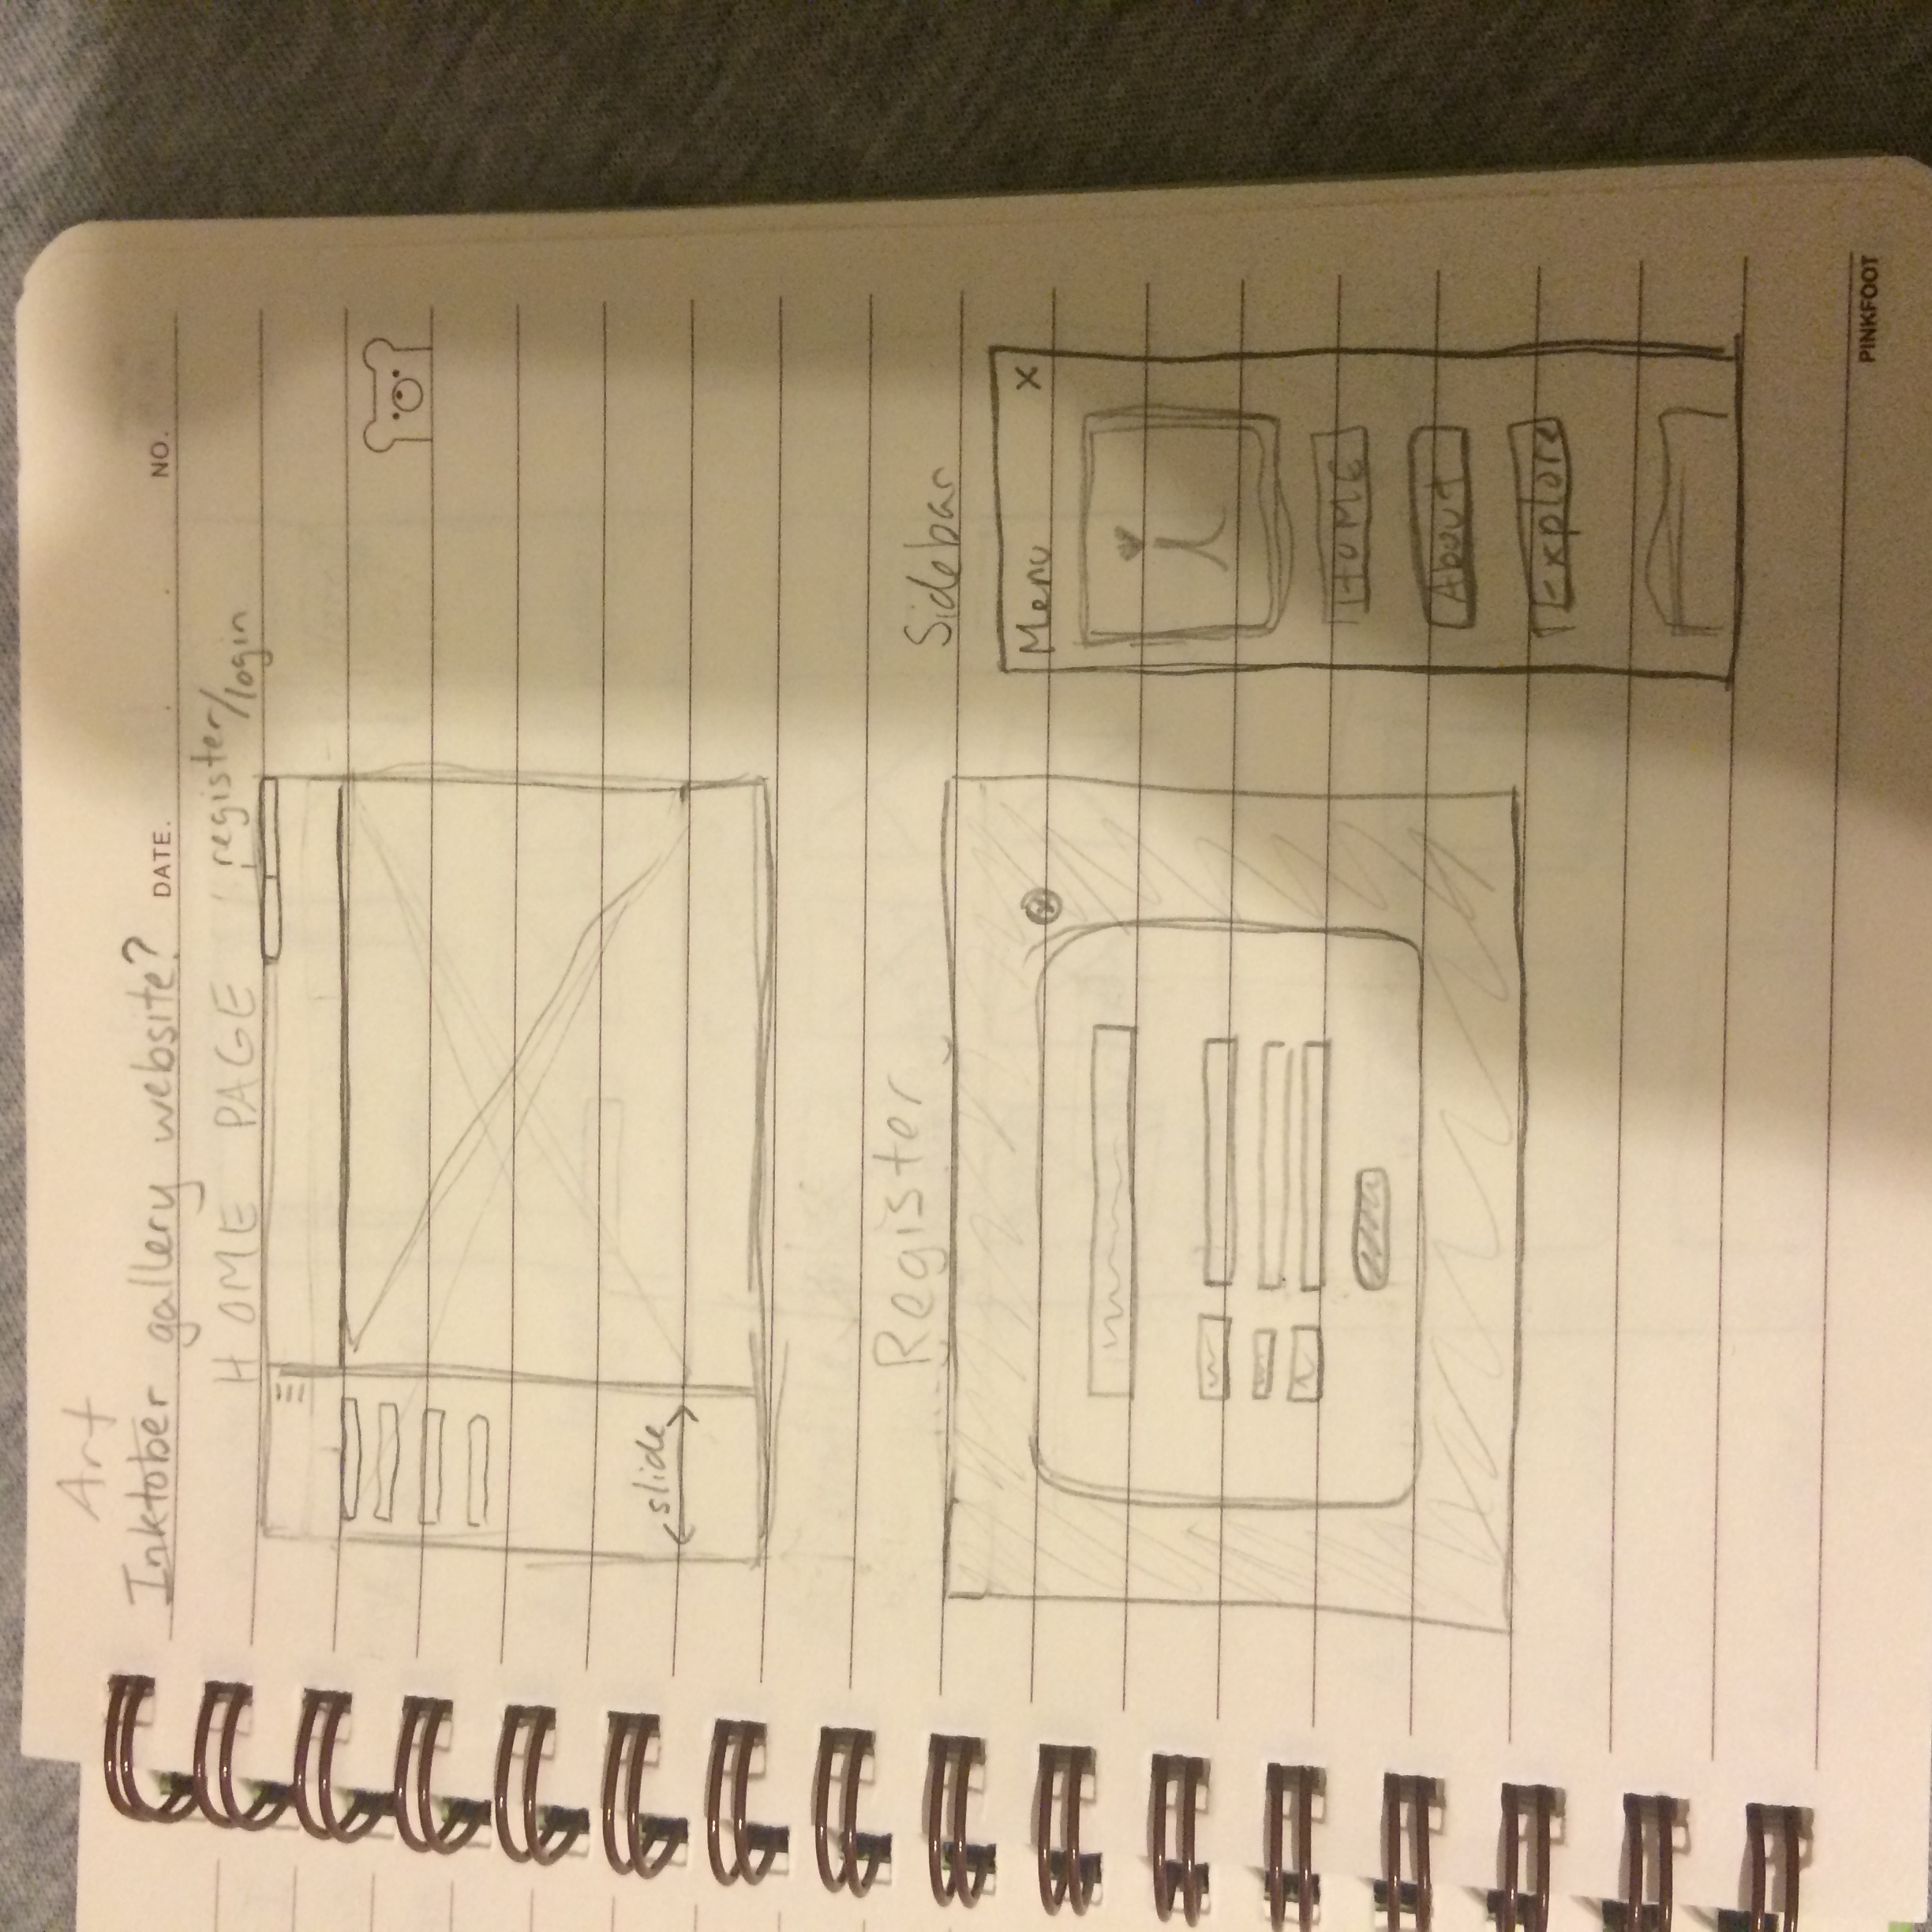 Art
Inktober gallery website?
DATE. . . NO.
HOME PAGE
register/login
slide
Register
Sidebar
Menu X
i
HOME
About
Explore
PINKFOOT